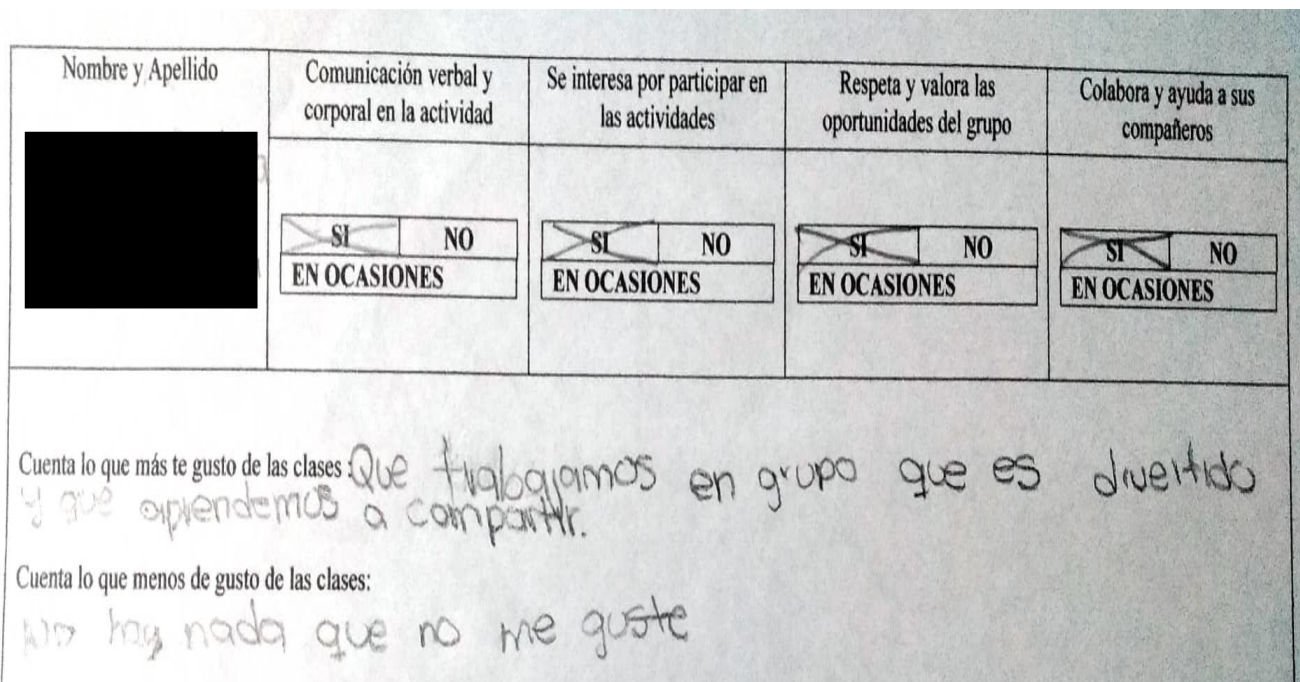 Nombre y Apellido
Comunicación verbal y
corporal en la actividad
Se interesa por participar en
las actividades
Respeta y valora las
oportunidades del grupo
Colabora y ayuda a sus
compañeros
SI NO
EN OCASIONES
SI NO
EN OCASIONES
SI NO
EN OCASIONES
SI NO
EN OCASIONES
Cuenta lo que más te gusto de las clases: Que trabajamos en grupo que es divertido
y que aprendemos a compartir.
Cuenta lo que menos de gusto de las clases:
No hay nada que no me guste